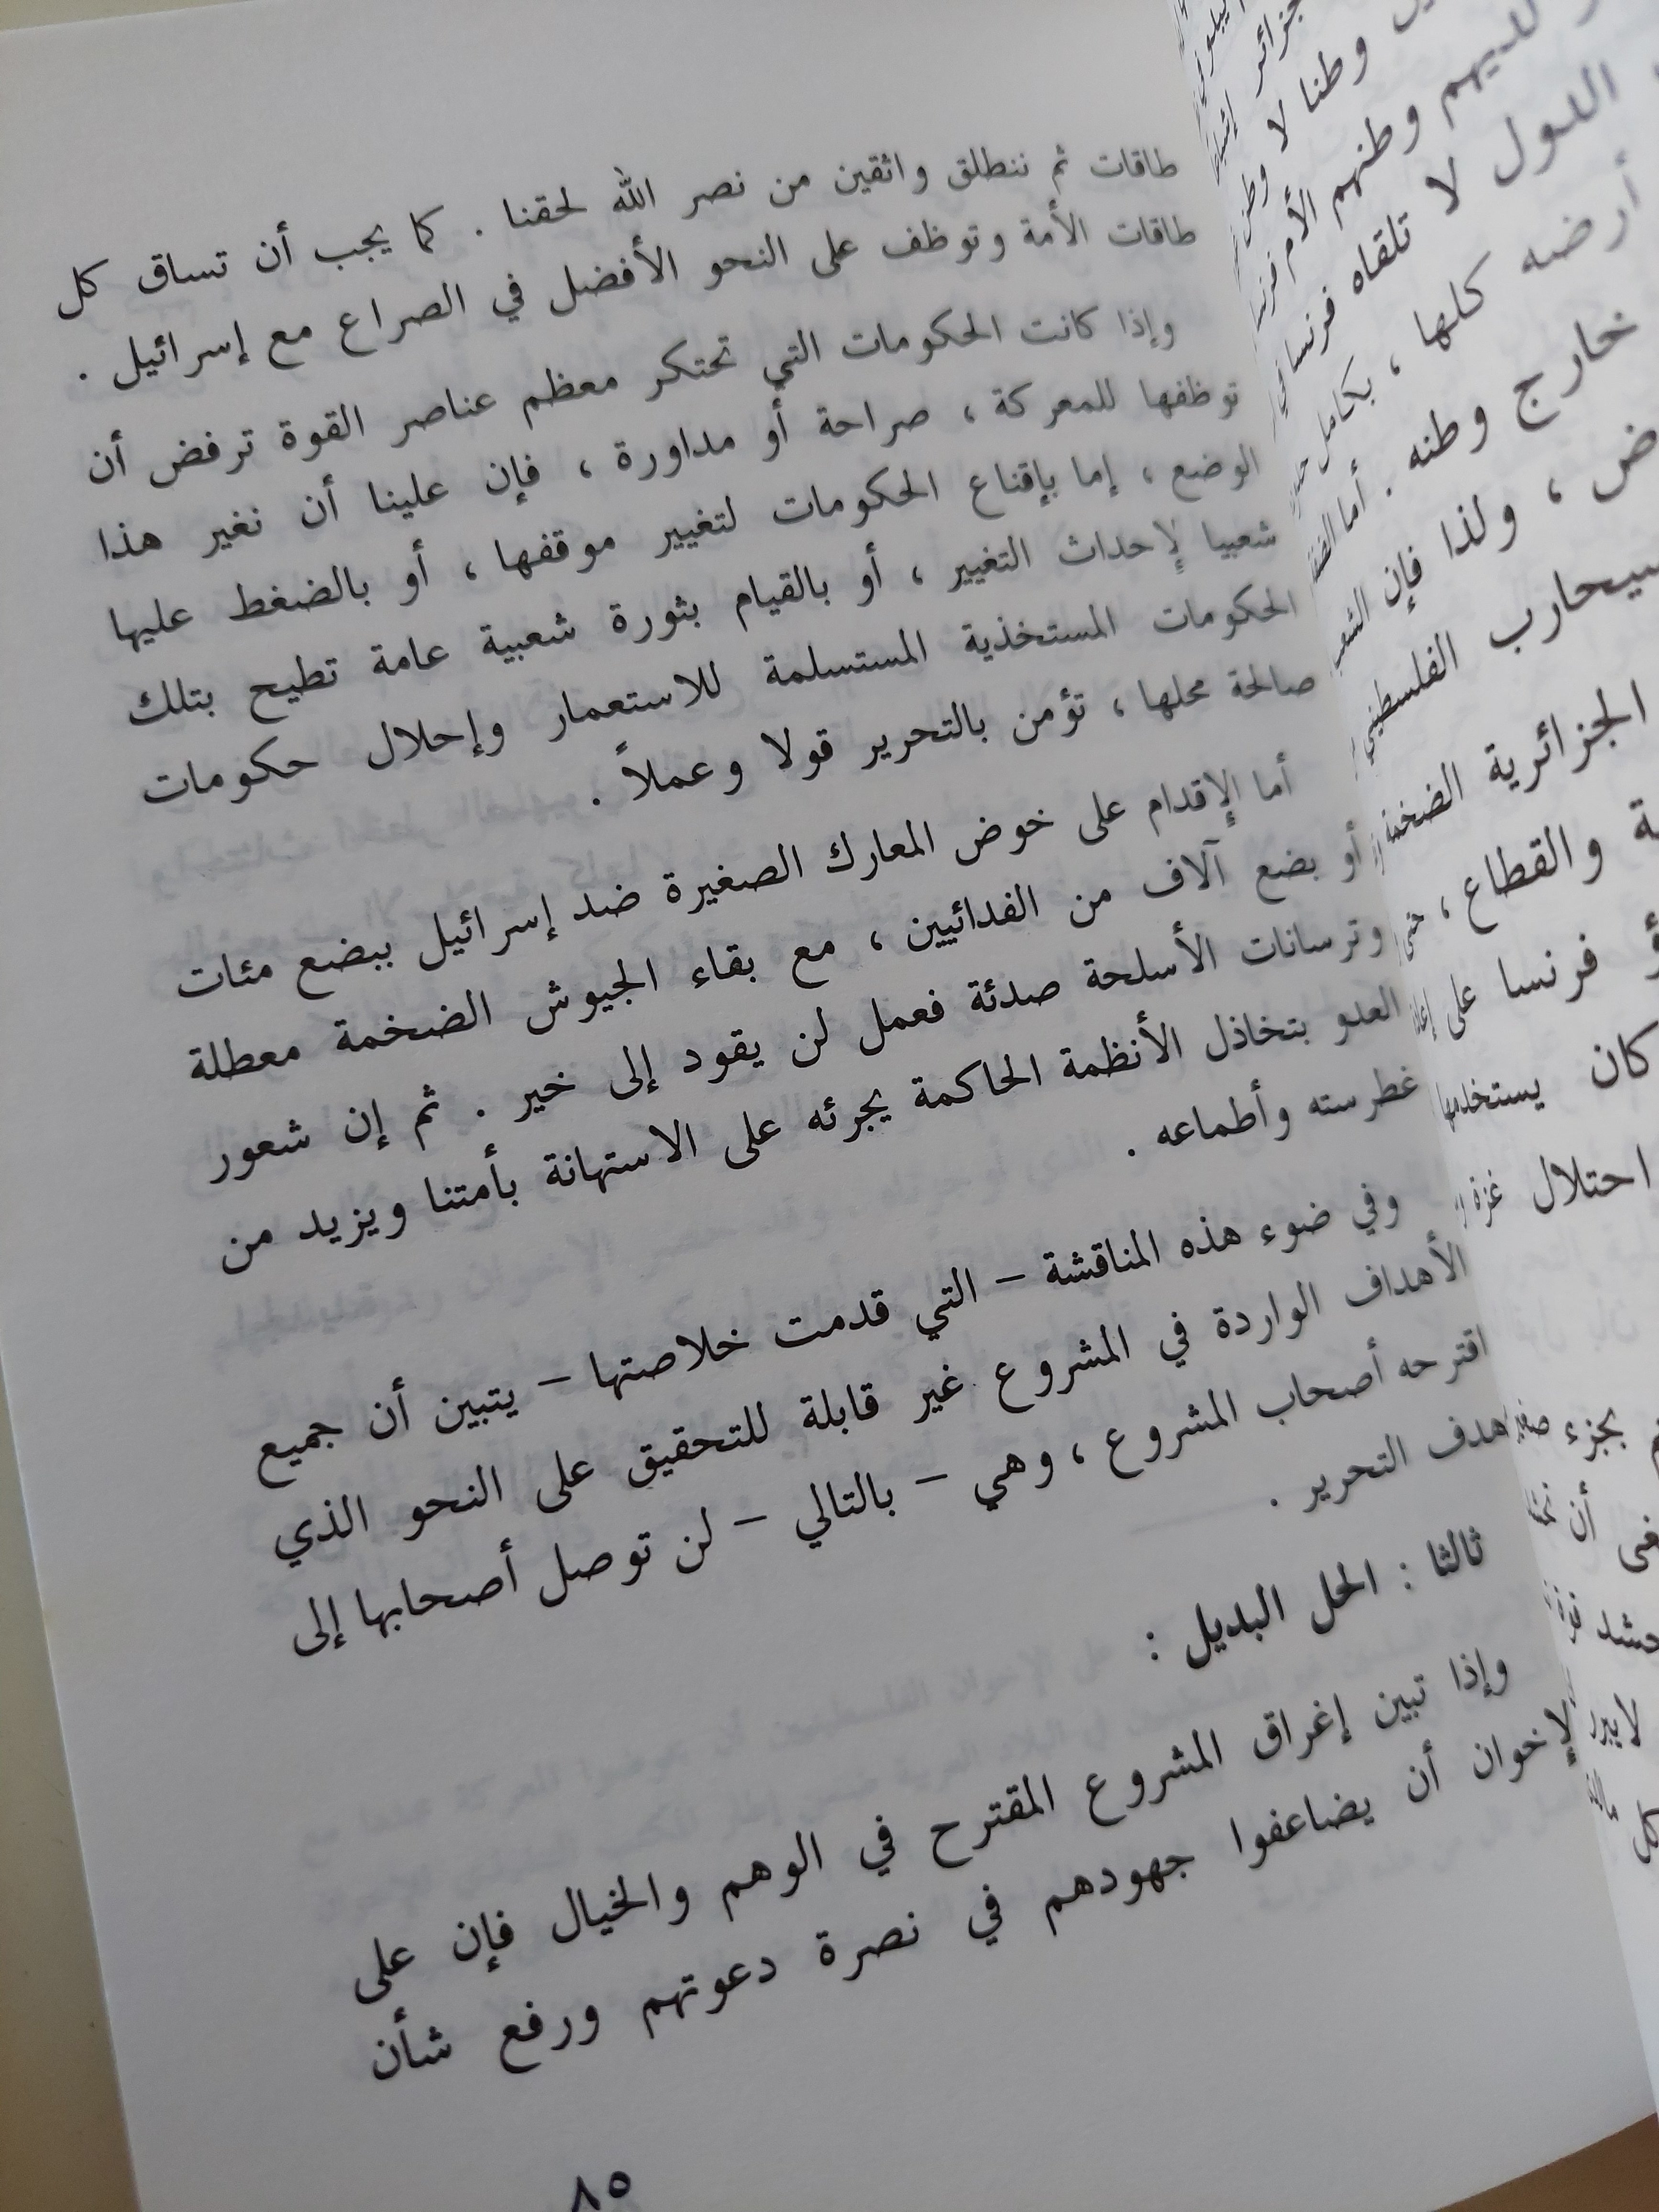 طاقات ثم ننطلق واثقين من نصر الله لحقنا . كما يجب أن تساق كل
طاقات الأمة وتوظف على النحو الأفضل في الصراع مع إسرائيل .
وإذا كانت الحكومات التي تحتكر معظم عناصر القوة ترفض أن
توظفها للمعركة ، صراحة أو مداورة ، فإن علينا أن نغير هذا
الوضع ، إما بإقناع الحكومات لتغيير موقفها ، أو بالضغط عليها
شعبيا لإحداث التغيير ، أو بالقيام بثورة شعبية عامة تطيح بتلك
الحكومات المستخذية المستسلمة للاستعمار وإحلال حكومات
صالحة محلها ، تؤمن بالتحرير قولا وعملاً .
أما الإقدام على خوض المعارك الصغيرة ضد إسرائيل ببضع مئات
أو بضع آلاف من الفدائيين ، مع بقاء الجيوش الضخمة معطلة
وترسانات الأسلحة صدئة فعمل لن يقود إلى خير . ثم إن شعور
العدو بتخاذل الأنظمة الحاكمة يجرئه على الاستهانة بأمتنا ويزيد من
غطرسته وأطماعه .
وفي ضوء هذه المناقشة – التي قدمت خلاصتها – يتبين أن جميع
الأهداف الواردة في المشروع غير قابلة للتحقيق على النحو الذي
اقترحه أصحاب المشروع ، وهي – بالتالي – لن توصل أصحابها إلى
هدف التحرير .
ثالثا : الحل البديل :
وإذا تبين إغراق المشروع المقترح في الوهم والخيال فإن على
لإخوان أن يضاعفوا جهودهم في نصرة دعوتهم ورفع شأن
٨٥
وطنا لا
لديهم وطنهم الأم
الدول لا تلقاه فرنسا في
أرضه كلها ، بكامل
خارج وطنه . أما
ولذا فإن الشعب
سيحارب الفلسطيني
الجزائرية الضخمة
والقطاع ، حتى
فرنسا على
كان يستخدمها
احتلال غزة
بجزء
أن
حشد
لا يبرر
كل